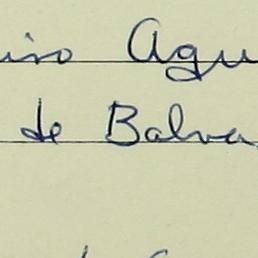 iro Agu
de Balva